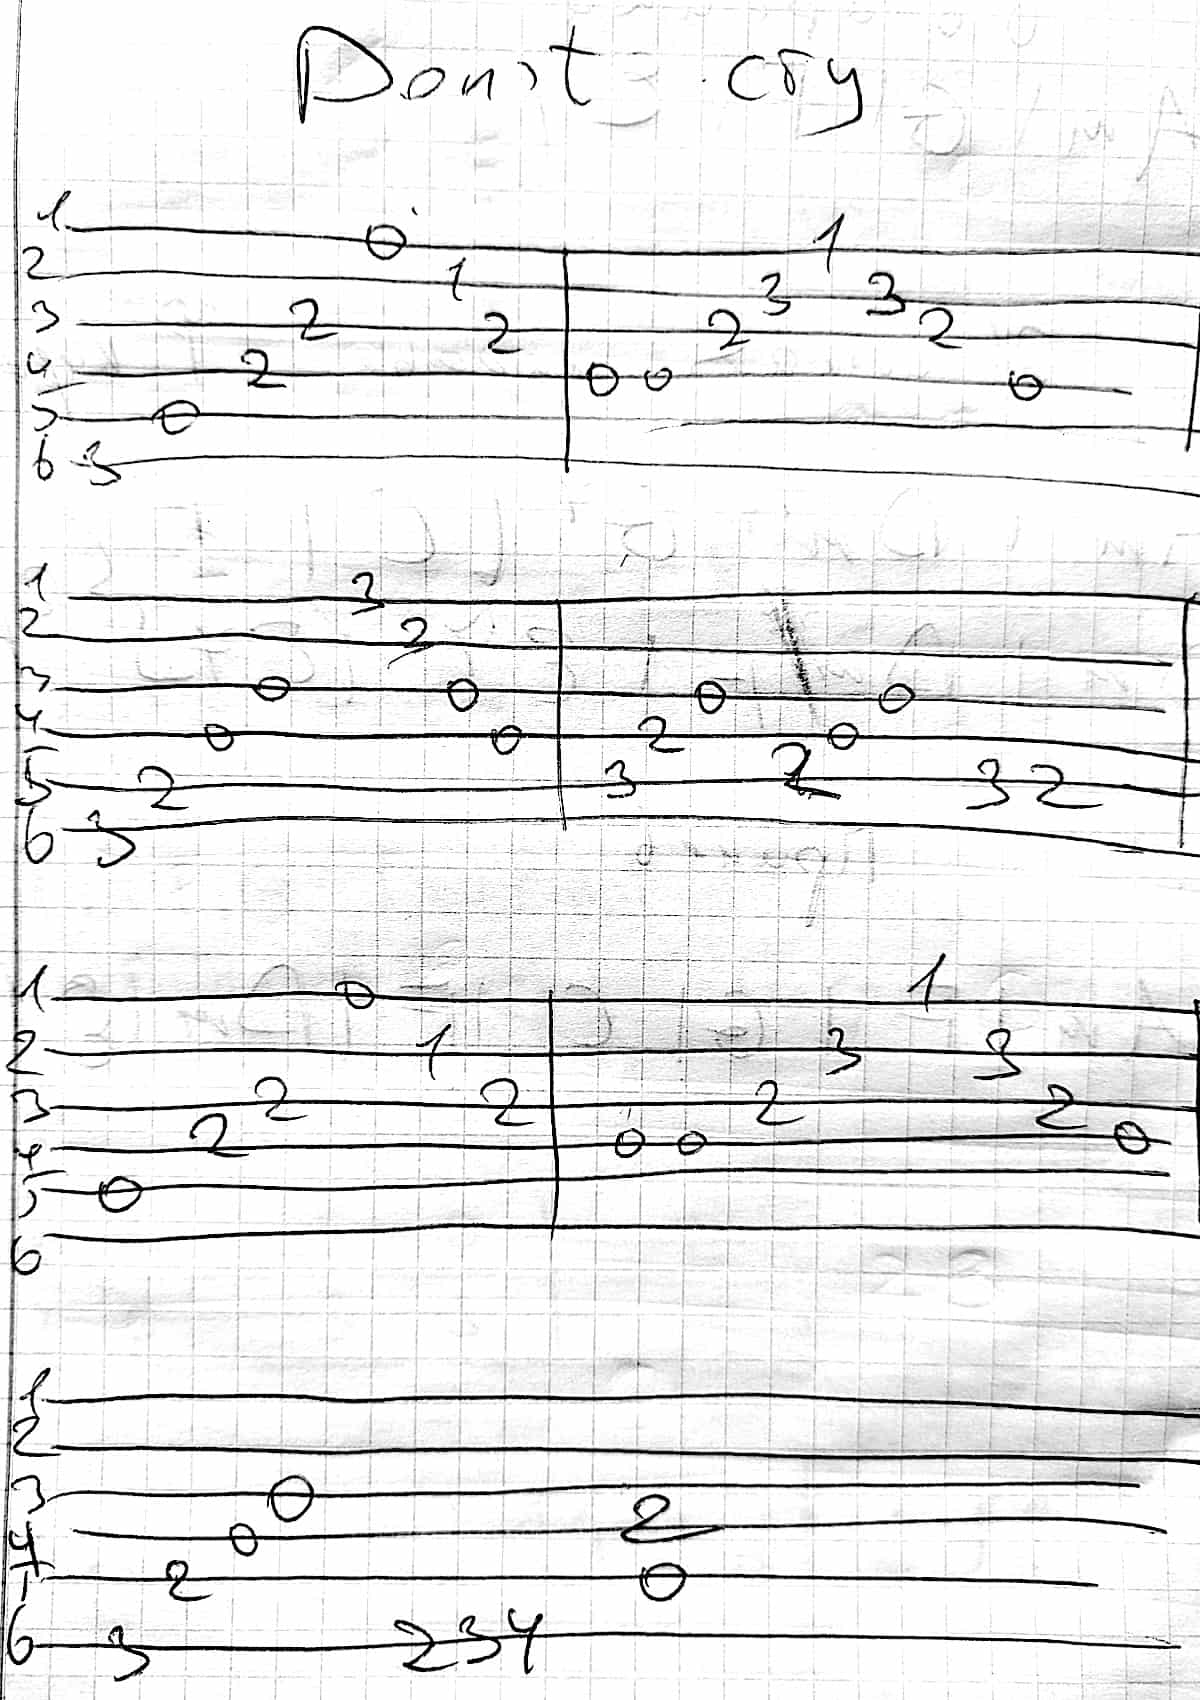 Don't cry
1 0
2 1 3 3
3 2 2 2 2
4 2 0 0 0
5 0
6 3
1 3
2 2
3 0 0 0 0
4 0 0 2 0
5 2 3 2 3 2
6 3
1 0 1
2 1 3 3
3 2 2 2 2
4 2 0 0 0
5 0
6
1
2
3 0
4 0 2
5 2 0
6 3 2 3 4